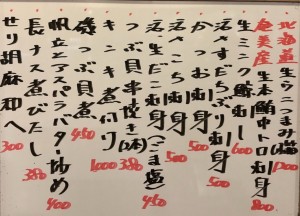 北海道 生ウニつまみ
奄美産 生本鮪中トロ刺身 800
生ミンク鯨刺し 600
活〆すだちぶり刺身 500
かつお刺身 500
活生だこ刺身(ごま塩) 450
つぶ貝串焼き(2本) 380
キンキ煮付け 1000
磯つぶ貝煮 450
帆立とアスパラバター炒め 700
長ナス煮びたし 380
せり胡麻和へ 300